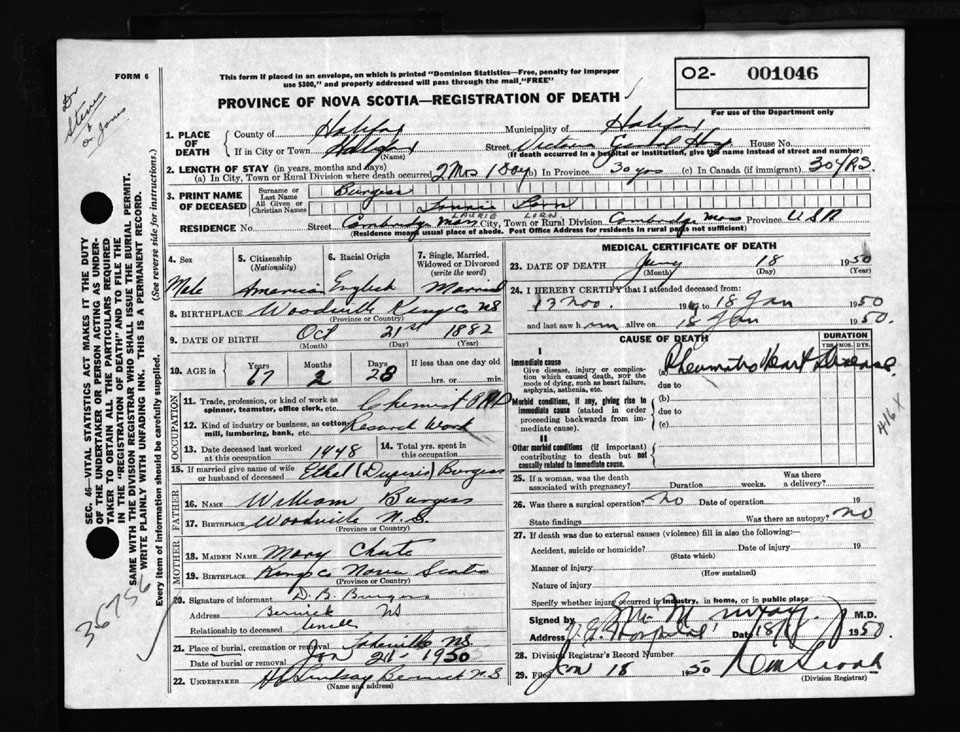 FORM 6
This form if placed in an envelope, on which is printed "Dominion Statistics—Free, penalty for improper
use $300," and properly addressed will pass through the mail, "FREE"
O2- 001046
For use of the Department only
PROVINCE OF NOVA SCOTIA—REGISTRATION OF DEATH
Dr
Stevens
&
or Jones
1. PLACE OF DEATH County of Halifax Municipality of Halifax
If in City or Town Halifax (Name) Street Victoria Genl Hosp. House No.
(If death occurred in a hospital or institution, give the name instead of street and number)
2. LENGTH OF STAY (in years, months and days)
(a) In City, Town or Rural Division where death occurred 2 Mos 1 Day (b) In Province 30 yrs (c) In Canada (if immigrant) 30 YRS.
3. PRINT NAME OF DECEASED
Surname or Last Name Burgess
All Given or Christian Names Lorn
LAURIE LORN
RESIDENCE No. Street Cambridge Mass City, Town or Rural Division Cambridge Mass Province USA
(Residence means usual place of abode. Post Office Address for residents in rural parts not sufficient)
4. Sex Male
5. Citizenship (Nationality) American
6. Racial Origin English
7. Single, Married, Widowed or Divorced (write the word) Married
8. BIRTHPLACE Woodville Kings Co NS
(Province or Country)
9. DATE OF BIRTH Oct 21st 1882
(Month) (Day) (Year)
10. AGE in Years 67 Months 2 Days 28 If less than one day old
hrs. or min.
OCCUPATION
11. Trade, profession, or kind of work as spinner, teamster, office clerk, etc. Chemist
12. Kind of industry or business, as cotton mill, lumbering, bank, etc. Research Work
13. Date deceased last worked at this occupation 1948
14. Total yrs. spent in this occupation
15. If married give name of wife or husband of deceased Ethel Burgess
FATHER
16. NAME William Burgess
17. BIRTHPLACE Woodville N.S.
(Province or Country)
MOTHER
18. MAIDEN NAME Mary Chute
19. BIRTHPLACE Kings Co Nova Scotia
(Province or Country)
20. Signature of informant D. B. Burgess
Address Berwick NS
Relationship to deceased Uncle
21. Place of burial, cremation or removal Lakeville NS.
Date of burial or removal Jan 21 1950
22. UNDERTAKER Lindsay Berwick N.S
(Name and address)
MEDICAL CERTIFICATE OF DEATH
23. DATE OF DEATH Jany 18 1950
(Month) (Day) (Year)
24. I HEREBY CERTIFY that I attended deceased from:
13 Nov. 19 to 18 Jan 1950
and last saw him alive on 18 Jan 1950.
CAUSE OF DEATH DURATION
YRS. MOS. DYS.
I
Immediate cause Rheumatic Heart Disease
Give disease, injury or complication which caused death, not the mode of dying, such as heart failure, asphyxia, asthenia, etc.
due to
Morbid conditions, if any, giving rise to immediate cause (stated in order proceeding backwards from immediate cause).
(b)
due to
(c)
416X
II
Other morbid conditions (if important) contributing to death but not causally related to immediate cause.
25. If a woman, was the death associated with pregnancy? Duration weeks. Was there a delivery?
26. Was there a surgical operation? No Date of operation 19
State findings Was there an autopsy? No
27. If death was due to external causes (violence) fill in also the following:
Accident, suicide or homicide? Date of injury 19
(State which)
Manner of injury
(How sustained)
Nature of injury
Specify whether injury occurred in industry, in home, or in public place
Signed by M.D.
Address V.G. Hospital Date 18 1950.
28. Division Registrar's Record Number
29. Filed Jan 18 1950
(Division Registrar)
SEC. 46—VITAL STATISTICS ACT MAKES IT THE DUTY
OF THE UNDERTAKER OR PERSON ACTING AS UNDER-
TAKER TO OBTAIN ALL THE PARTICULARS REQUIRED
IN THE "REGISTRATION OF DEATH" AND TO FILE THE
SAME WITH THE DIVISION REGISTRAR WHO SHALL ISSUE THE BURIAL PERMIT.
WRITE PLAINLY WITH UNFADING INK. THIS IS A PERMANENT RECORD.
Every item of information should be carefully supplied. (See reverse side for instructions.)
36756